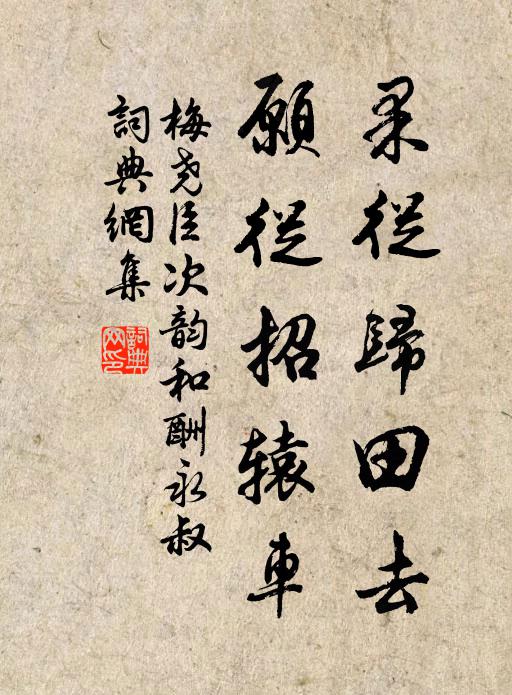 果從歸田去
願從招辕車
梅尧臣次韵和酬永叔
詞典網集
詞典
网印